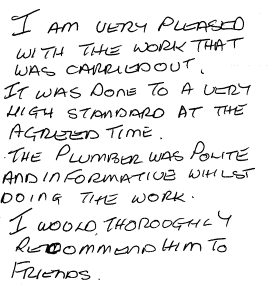 I AM VERY PLEASED
WITH THE WORK THAT
WAS CARRIED OUT.
IT WAS DONE TO A VERY
HIGH STANDARD AT THE
AGREED TIME.
THE PLUMBER WAS POLITE
AND INFORMATIVE WHILST
DOING THE WORK.
I WOULD, THOROUGHLY
RECOMMEND HIM TO
FRIENDS.